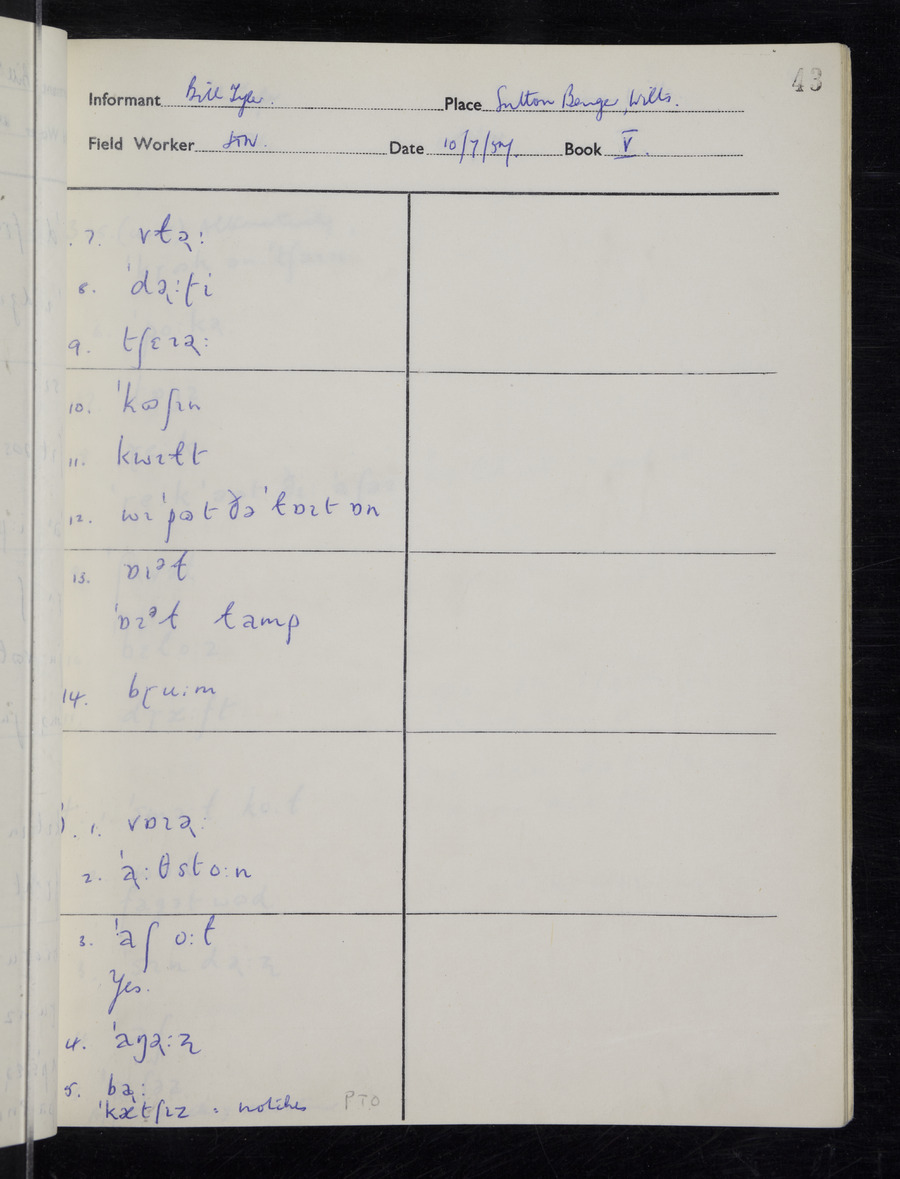 43
Informant Bill Tyler. Place Sutton Benger, Wilts.
Field Worker Date 10/7/57 Book V.
7. vɫɚ:
8. ˈdɚ:ʈi
9. tʃɛɪɚ:
10. ˈkʊʃɪn
11. kwɪɫt
12. wɪ ˈpət ðə ˈɫɒɪt ɒn
13. ɒɪᵊɫ
ˈɒɪᵊɫ ɫamp
14. bɽu:m
1. vɒɪɚ:
2. ˈɚ:θsto:n
3. ˈaʃ o:ɫ
Yes.
4. ˈaŋɚ:z̢
5. bɚ:
ˈkætʃɪz = notches PTO